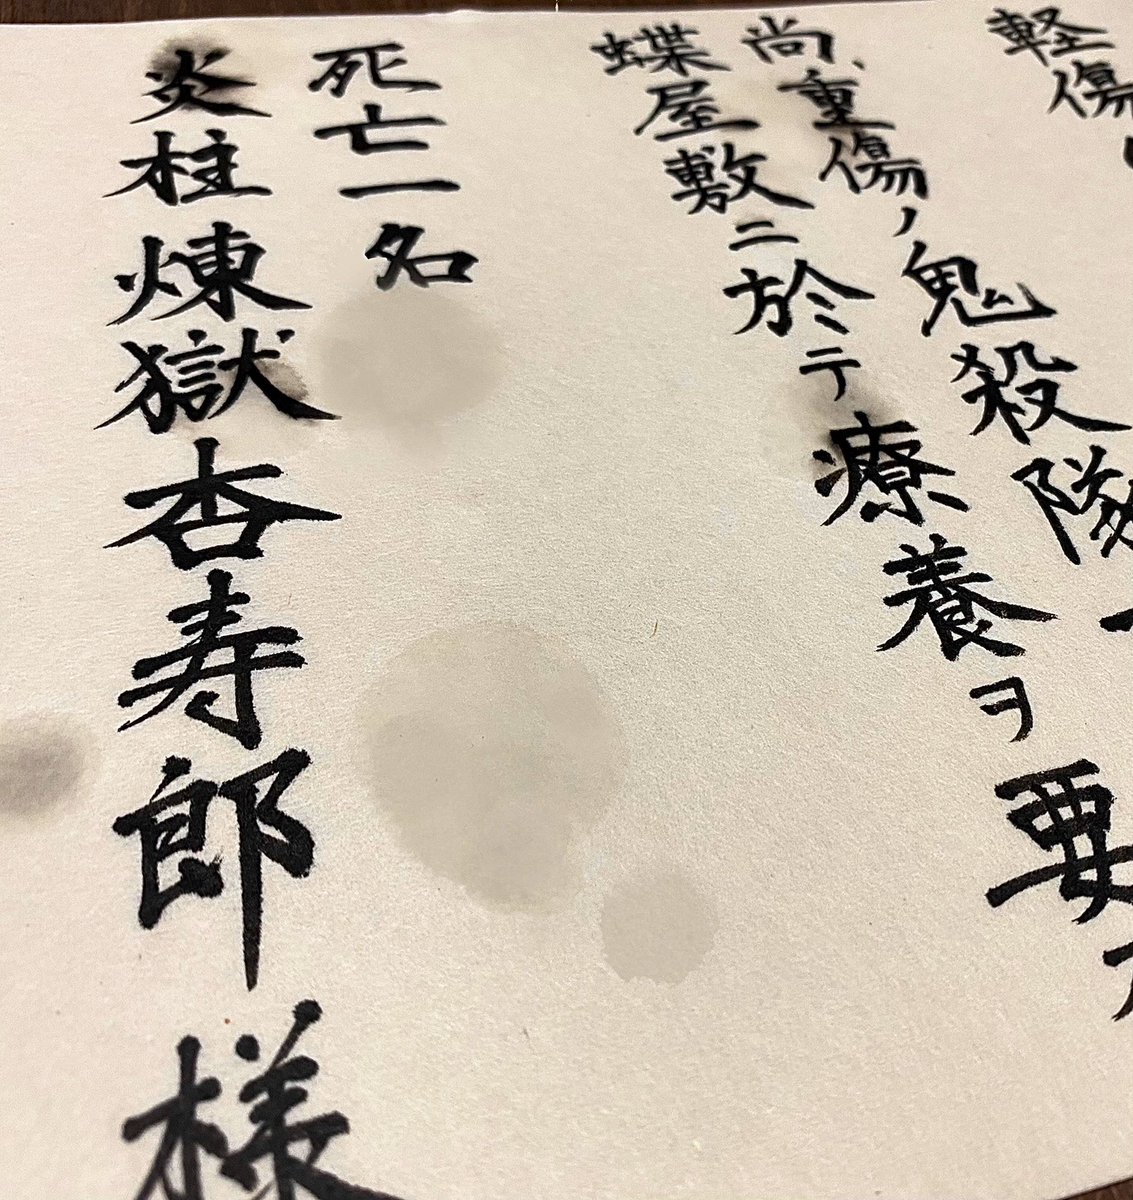 軽傷
尚、重傷ノ鬼殺隊
蝶屋敷ニ於テ療養ヲ要
死亡一名
炎柱煉獄杏寿郎様